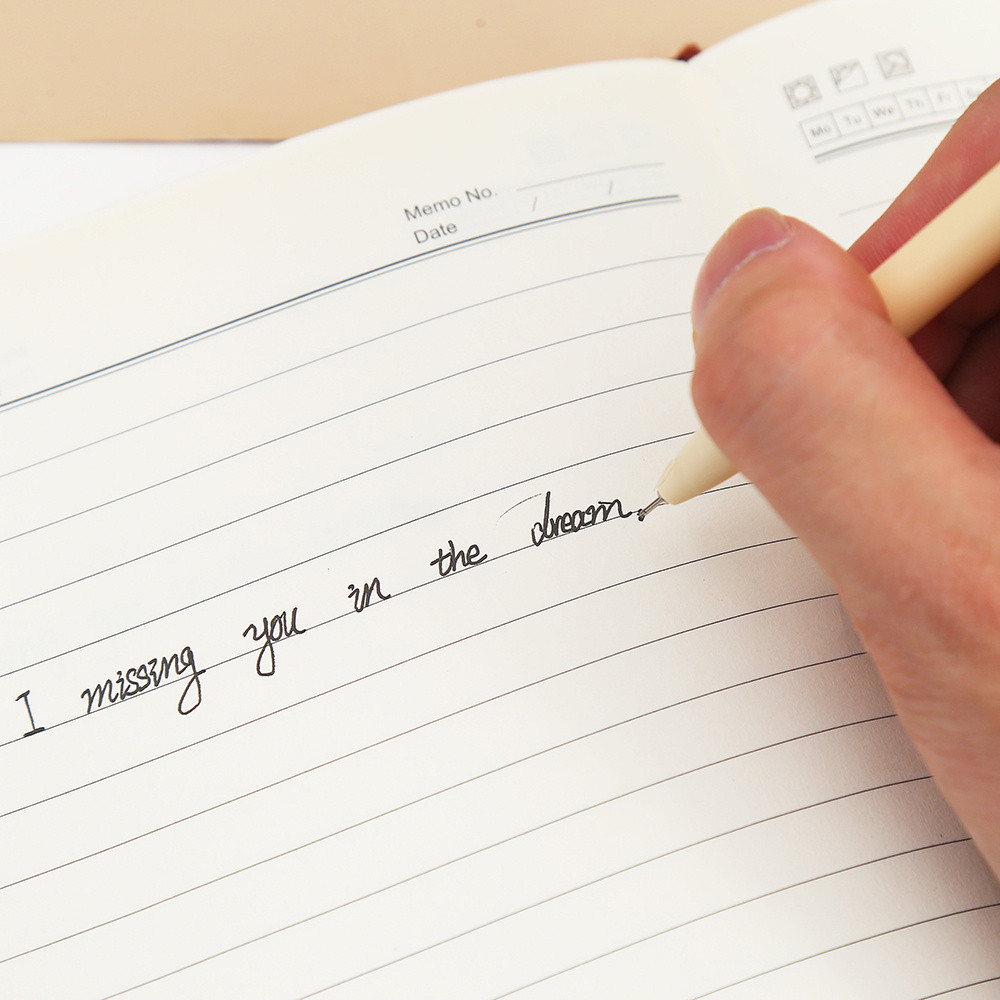 Memo No.
Date / /
Mo Tu We Th Fr
I missing you in the dream.